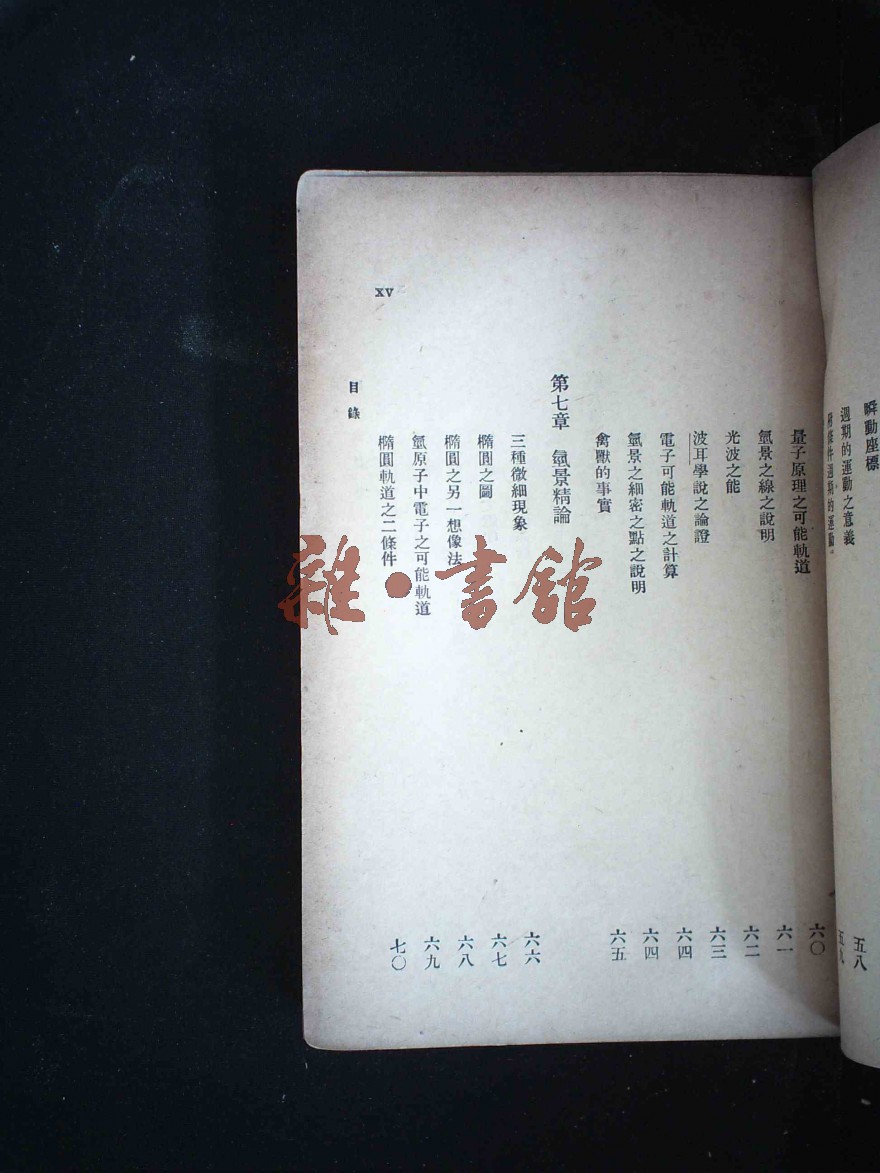 瞬動座標 五八
週期的運動之意義 五九
附條件週期的運動
量子原理之可能軌道 六〇
氫景之線之說明 六一
光波之能 六二
波耳學說之論證 六三
電子可能軌道之計算 六四
氫景之細密之點之說明 六四
禽獸的事實 六五
第七章 氫景精論
三種微細現象 六六
橢圓之圖 六七
橢圓之另一想像法 六八
氫原子中電子之可能軌道 六九
橢圓軌道之二條件 七〇
目錄
xv
雜·書館